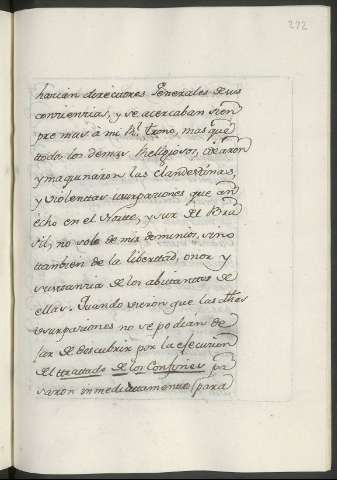 272
hacian directores Generales de sus
conciencias, y se acercaban siem
pre mas à mi Rl. trono, mas que
todos los demas Religiosos, idearon
y maquinaron las clandestinas,
y violentas usurpaciones que an
echo en el Norte, y sur del Bra
sil; no solo de mis dominios, sino
tambien de la libertad, onor y
sustancia de los abitantes de
ellas. Quando vieron que las dhas
usurpaciones no se podian de
jar de descubrir por la ejecucion
del trattado de los Confines pa
saron inmediattamente (para